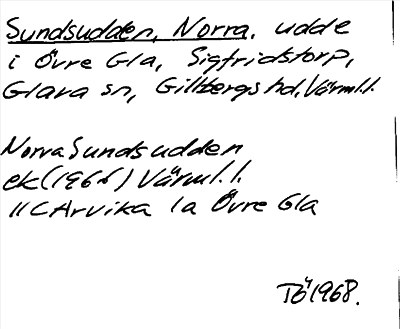 Sundsudden, Norra, udde
i Övre Gla, Sigfridstorp,
Glava sn, Gillbergs hd, Värml.l.
Norra Sundsudden
ek (1966) Värml.l.
11C Arvika 1a Övre Gla
Tö 1968.